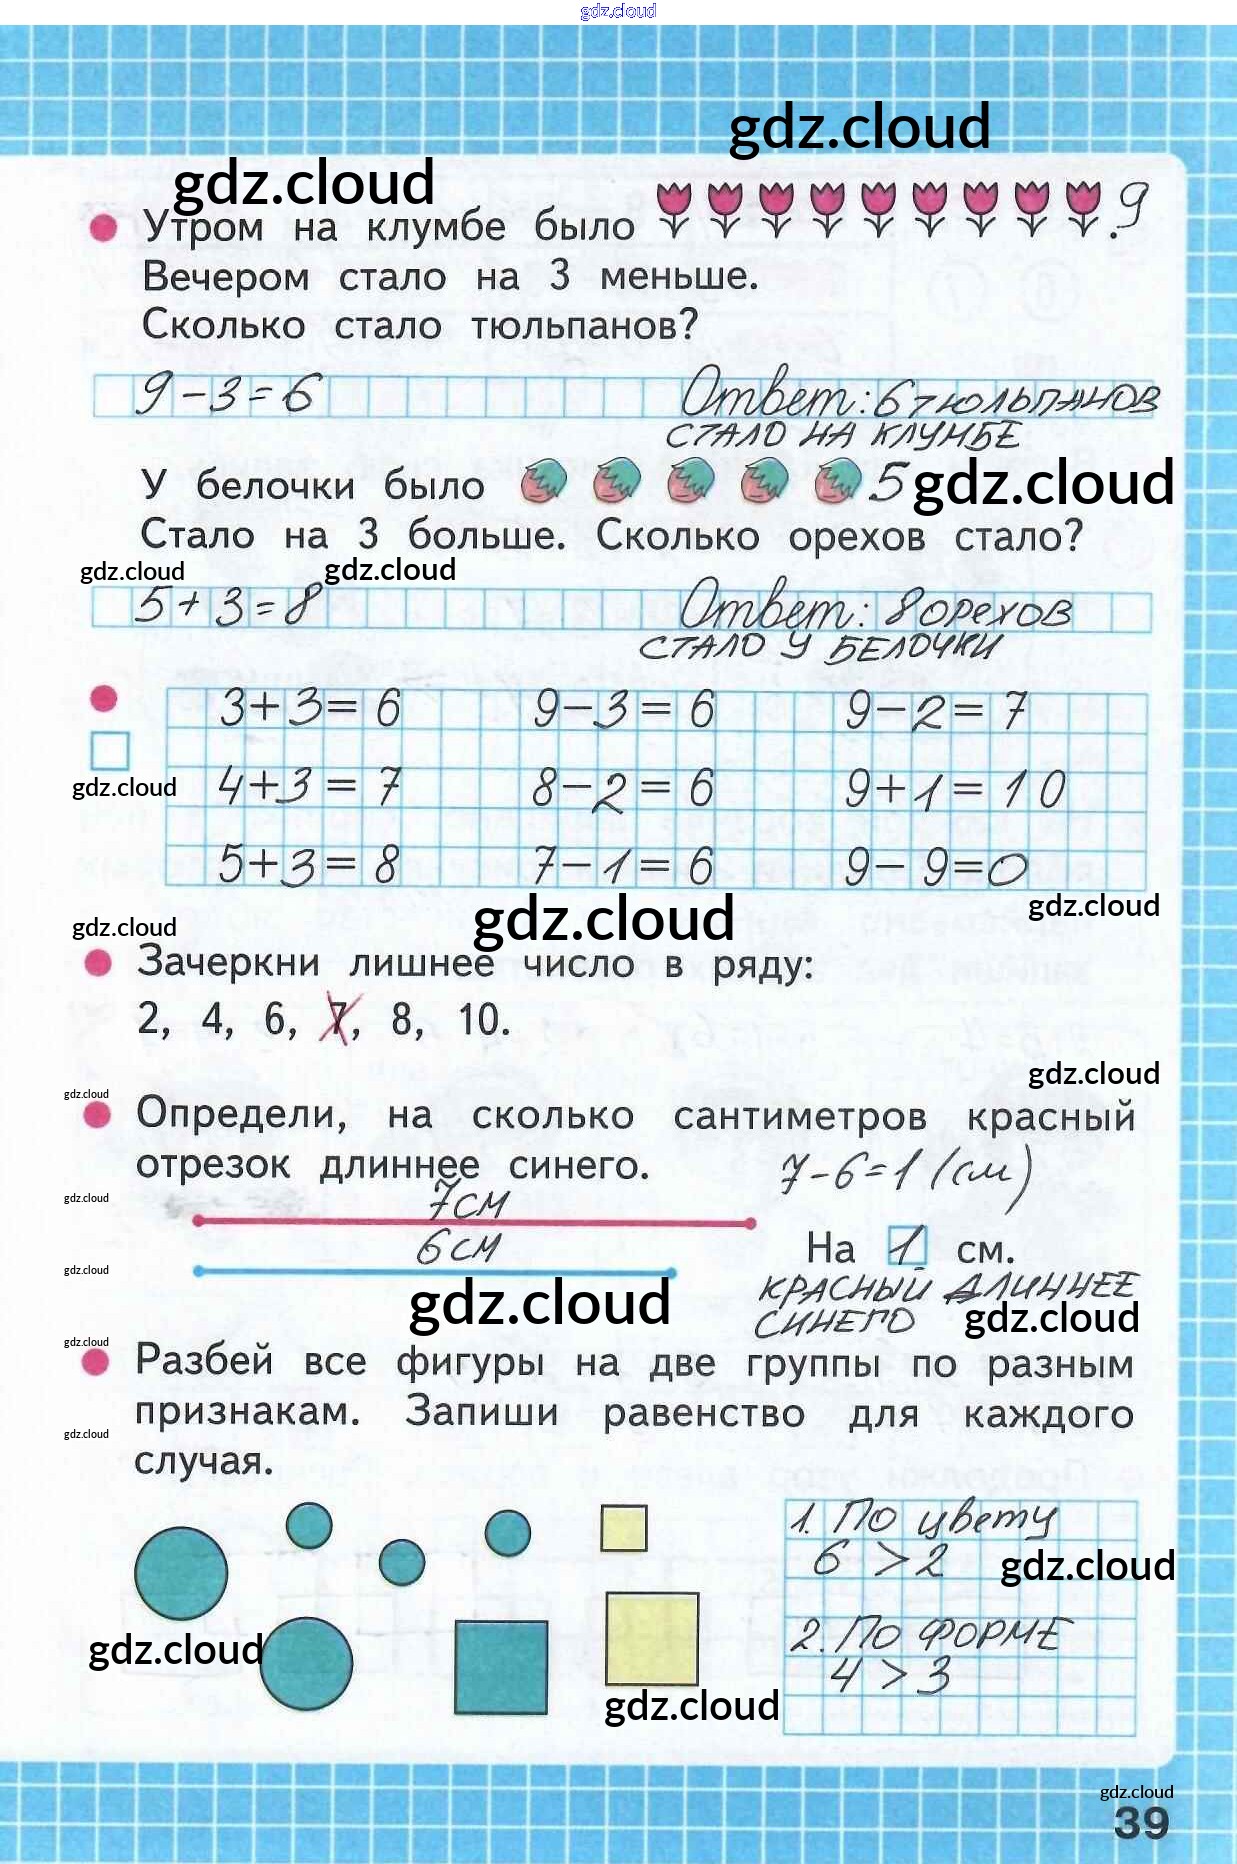 gdz.cloud
gdz.cloud
gdz.cloud
Утром на клумбе было . 9
Вечером стало на 3 меньше.
Сколько стало тюльпанов?
9-3=6 Ответ: 6 тюльпанов
СТАЛО НА КЛУМБЕ
У белочки было . 5 gdz.cloud
Стало на 3 больше. Сколько орехов стало?
gdz.cloud gdz.cloud
5+3=8 Ответ: 8 орехов
СТАЛО У БЕЛОЧКИ
3+3=6 9-3=6 9-2=7
gdz.cloud
4+3=7 8-2=6 9+1=10
5+3=8 7-1=6 9-9=0
gdz.cloud gdz.cloud gdz.cloud
Зачеркни лишнее число в ряду:
2, 4, 6, 7, 8, 10.
gdz.cloud
gdz.cloud
Определи, на сколько сантиметров красный
отрезок длиннее синего. 7-6=1 (см)
gdz.cloud
7см
6см На 1 см.
gdz.cloud
gdz.cloud КРАСНЫЙ ДЛИННЕЕ
СИНЕГО gdz.cloud
gdz.cloud
Разбей все фигуры на две группы по разным
признакам. Запиши равенство для каждого
gdz.cloud
случая.
1. По цвету
6 > 2 gdz.cloud
2. По ФОРМЕ
gdz.cloud
4 > 3
gdz.cloud
gdz.cloud
39